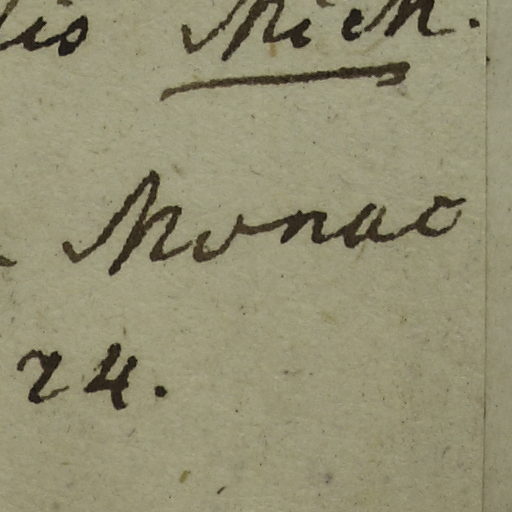 lis Mich.
Monac
24.